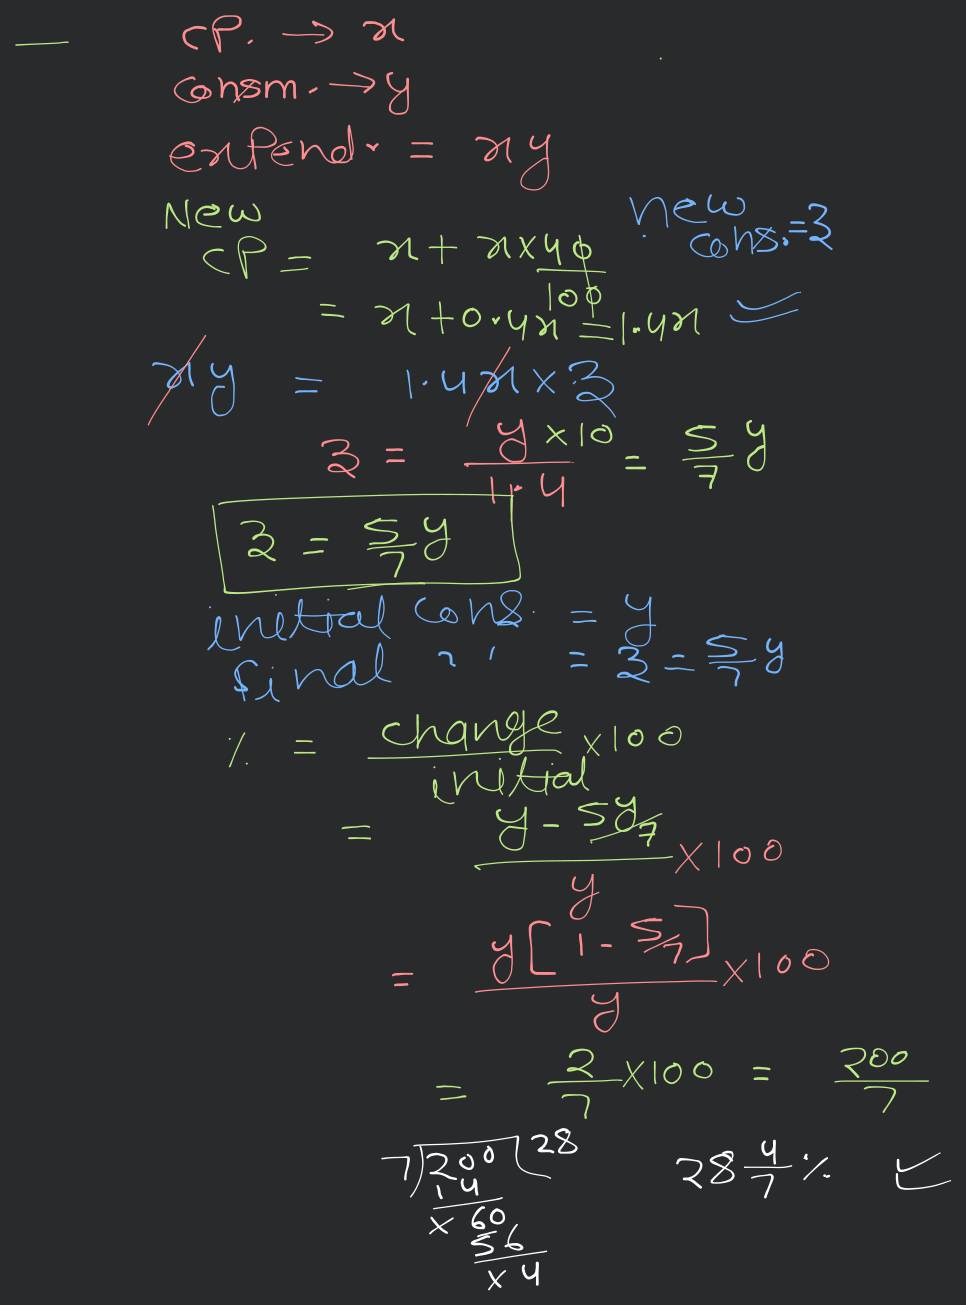 CP. → x
Consm. → y
expend. = xy
New
CP = x + x×40/100
new
cons. = z
= x + 0.4x = 1.4x
xy = 1.4x × z
z = y×10/1.4 = 5/7 y
z = 5/7 y
inetial cons. = y
final " = z = 5/7 y
% = change/initial ×100
= y - 5y/7 / y ×100
= y[1 - 5/7] / y ×100
= 2/7 ×100 = 200/7
7)200(28
14
x 60
56
x 4
28 4/7 %